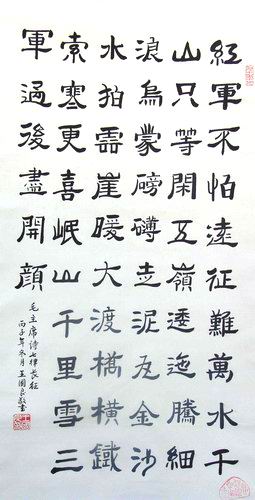 紅軍不怕遠征難萬水千
山只等閑五嶺逶迤騰細
浪烏蒙磅礴走泥丸金沙
水拍雲崖暖大渡橋橫鐵
索寒更喜岷山千里雪三
軍過後盡開顏
毛主席诗七律長征
丙子年冬月王國良敬書